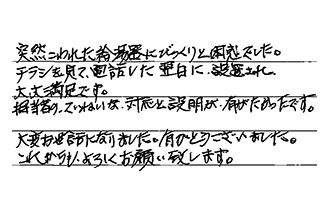 突然こわれた給湯器にびっくりと困惑でした。
チラシを見て、電話した翌日に、設置され、
大大満足です。
担当者の、ていねいな、対応と説明が、有がたかったです。
大変お世話になりました。有がとうございました。
これからも、よろしくお願い致します。